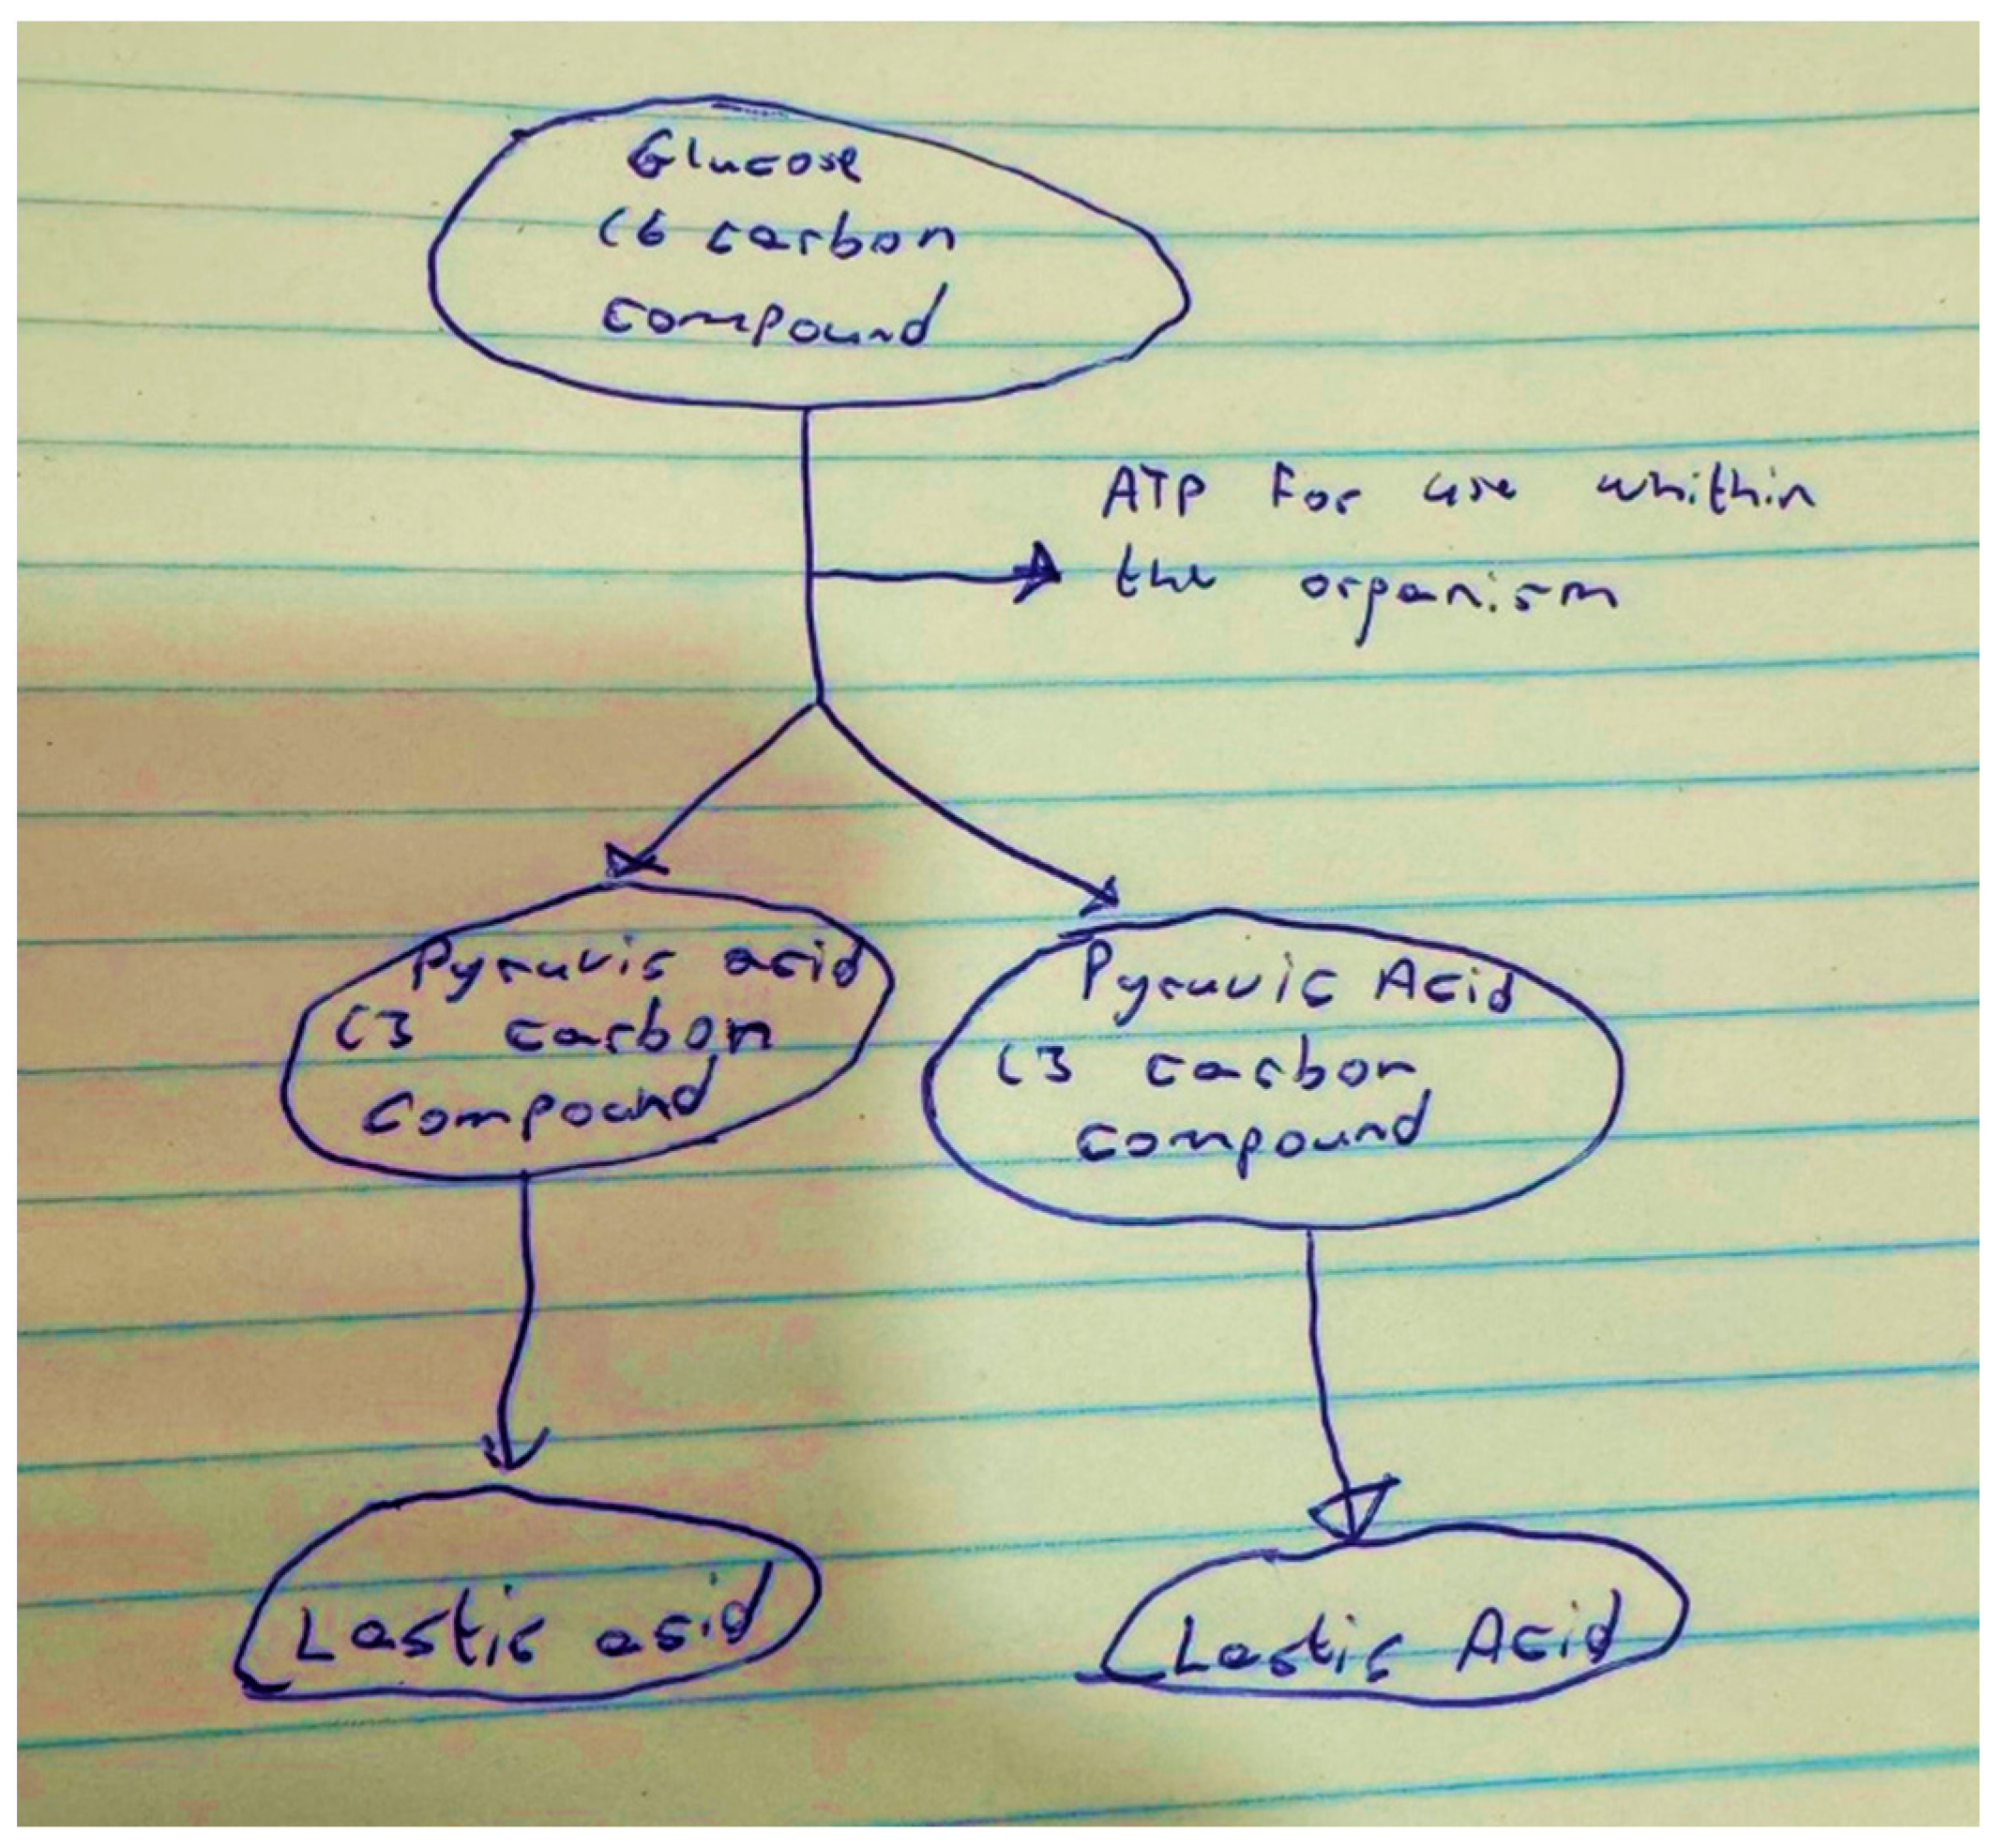 Glucose
C6 carbon
compound
ATP for use whithin
the organism
Pyruvic acid
C3 carbon
compound
Pyruvic Acid
C3 carbon
compound
Lactic acid
Lactic Acid